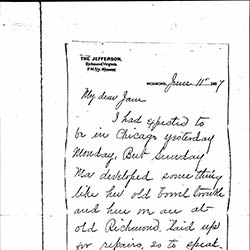 THE JEFFERSON,
Richmond, Virginia.
P.M. Fry, Manager.
RICHMOND, June 11th 1907
My dear Jam
I had expected to
be in Chicago yesterday
Monday, But Sunday
Ma developed some thing
like her old Tonsil trouble
and here we are at
old Richmond. Laid up
for repairs, so to speak.